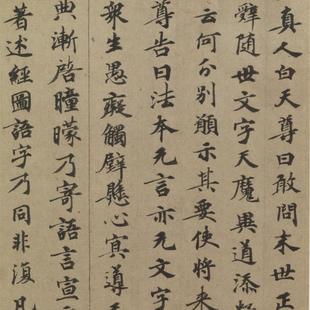 真人白天尊曰敢問末世正
辭随世文字天魔與道添
云何分別願示其要使將来
尊告曰法本无言亦无文字
衆生愚癡觸壁懸心寘導
典漸啓瞳矇乃寄語言宣
著述經圖語字乃同非復凡